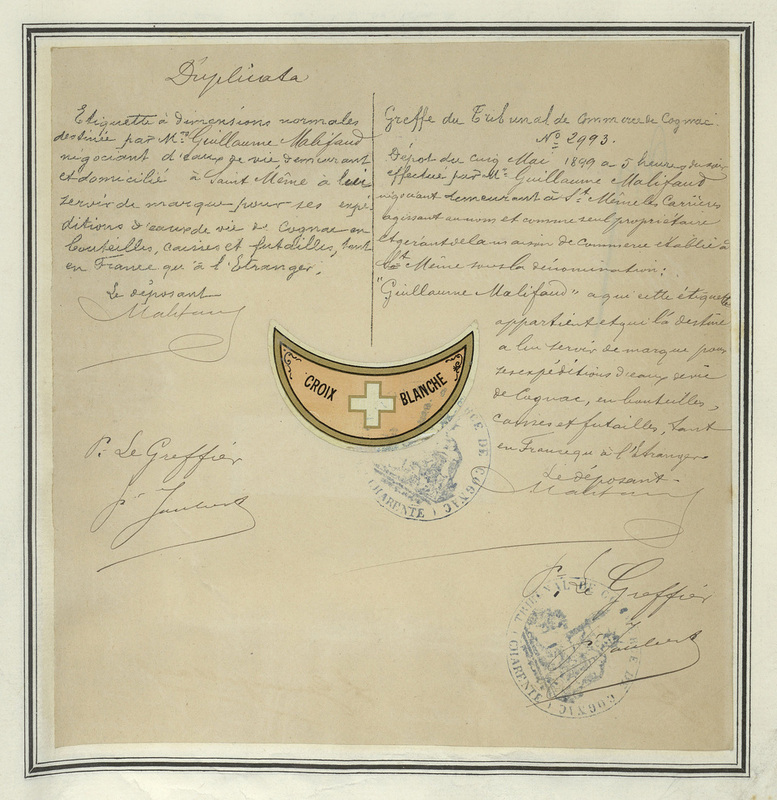 Duplicata
Etiquette à dimensions normales
destinée par Mr. Guillaume Malifaud
négociant d'eaux de vie, demeurant
et domicilié à Saint Même à lui
servir de marque pour ses expé-
ditions d'eaux de vie de Cognac en
bouteilles, caisses et futailles, tant
en France qu'à l'Etranger.
Le déposant
Malifaud
P. Le Greffier
Greffe du Tribunal de Commerce de Cognac.
No 2993.
Dépot du cinq Mai 1899 à 5 heures du soir
effectué par Mr. Guillaume Malifaud
négociant demeurant à St. Même les Carrières
agissant au nom et comme seul propriétaire
et gérant de la maison de commerce établie à
St. Même sous la dénomination:
"Guillaume Malifaud" à qui cette étiquette
appartient et qui la destine
à lui servir de marque pour
ses expéditions d'eaux de vie
de Cognac, en bouteilles,
caisses et futailles, tant
en France qu'à l'étranger.
Le déposant
Malifaud
CROIX BLANCHE
CE DE COGNAC (CHARENTE)
P. Le Greffier
TRIBUNAL DE COMMERCE DE COGNAC (CHARENTE)